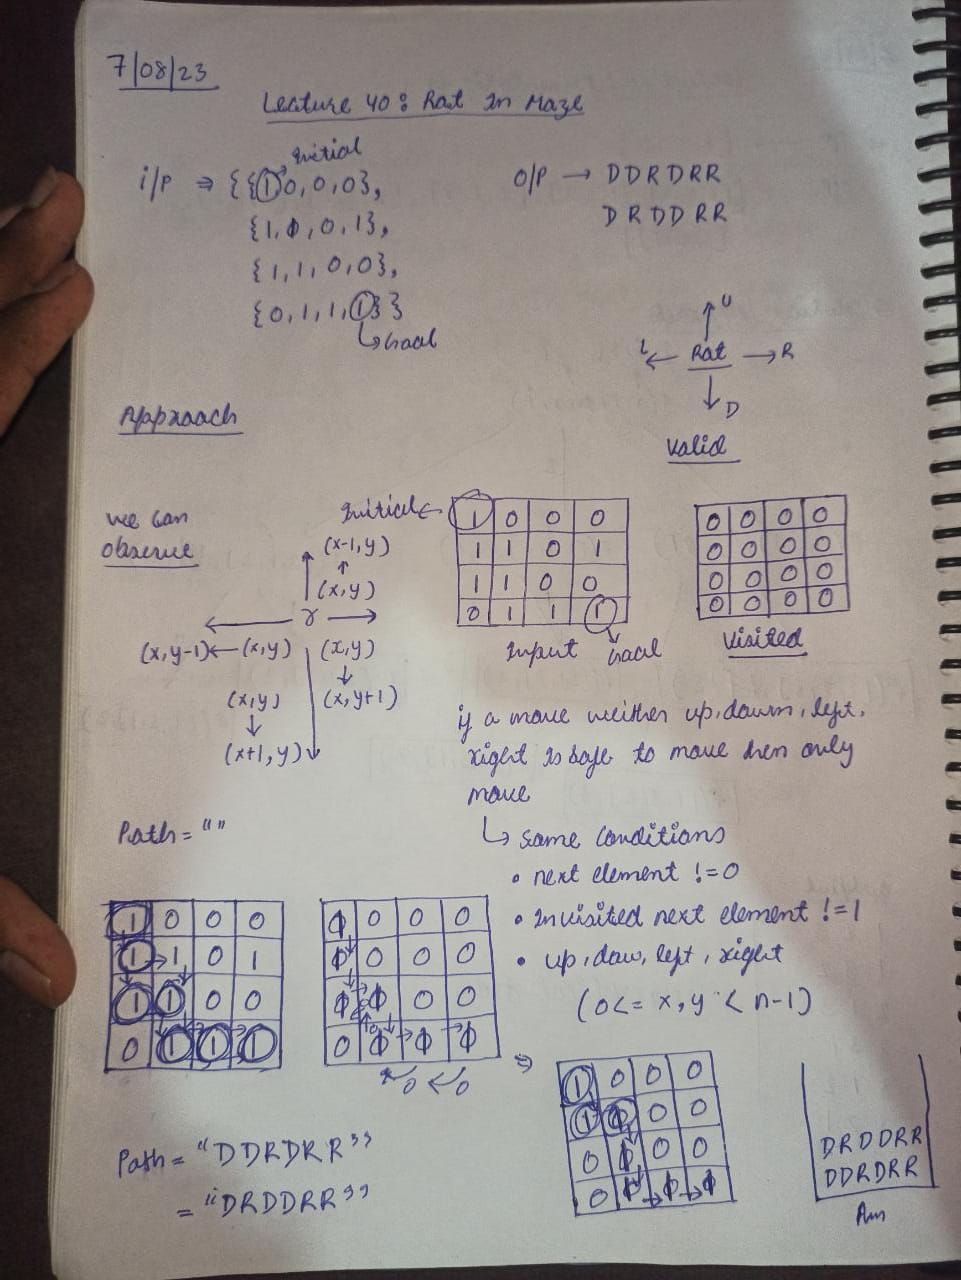 7/08/23
Lecture 40: Rat In Maze
Initial
i/p ⇒ {{1 0, 0, 0},
{1, 0, 0, 1},
{1, 1, 0, 0},
{0, 1, 1, 1}}
↳Goal
O/P → DDRDRR
DRDDRR
U
L ← Rat → R
D
Valid
Approach
We can
observe
(x-1,y)
↑
(x,y)
r
(x,y-1) ← (x,y)
(x,y)
↓
(x,y+1)
(x,y)
↓
(x+1,y)
Initial ←
1 0 0 0
1 1 0 1
1 1 0 0
0 1 1 1
Input Goal
0 0 0 0
0 0 0 0
0 0 0 0
0 0 0 0
Visited
if a move weither up, down, left,
right is safe to move then only
move
↳ some conditions
• next element != 0
• In visited next element != 1
• up, dow, left, right
(0<= x,y < n-1)
Path = ""
1 0 0 0
1 → 1 0 1
1 1 0 0
0 1 1 1
0 0 0
0 0 0
0 0
0
0 ← 0
⇒
1 0 0 0
1 0 0
0 0 0
0
Path = "DDRDRR"
= "DRDDRR"
DRDDRR
DDRDRR
Ans